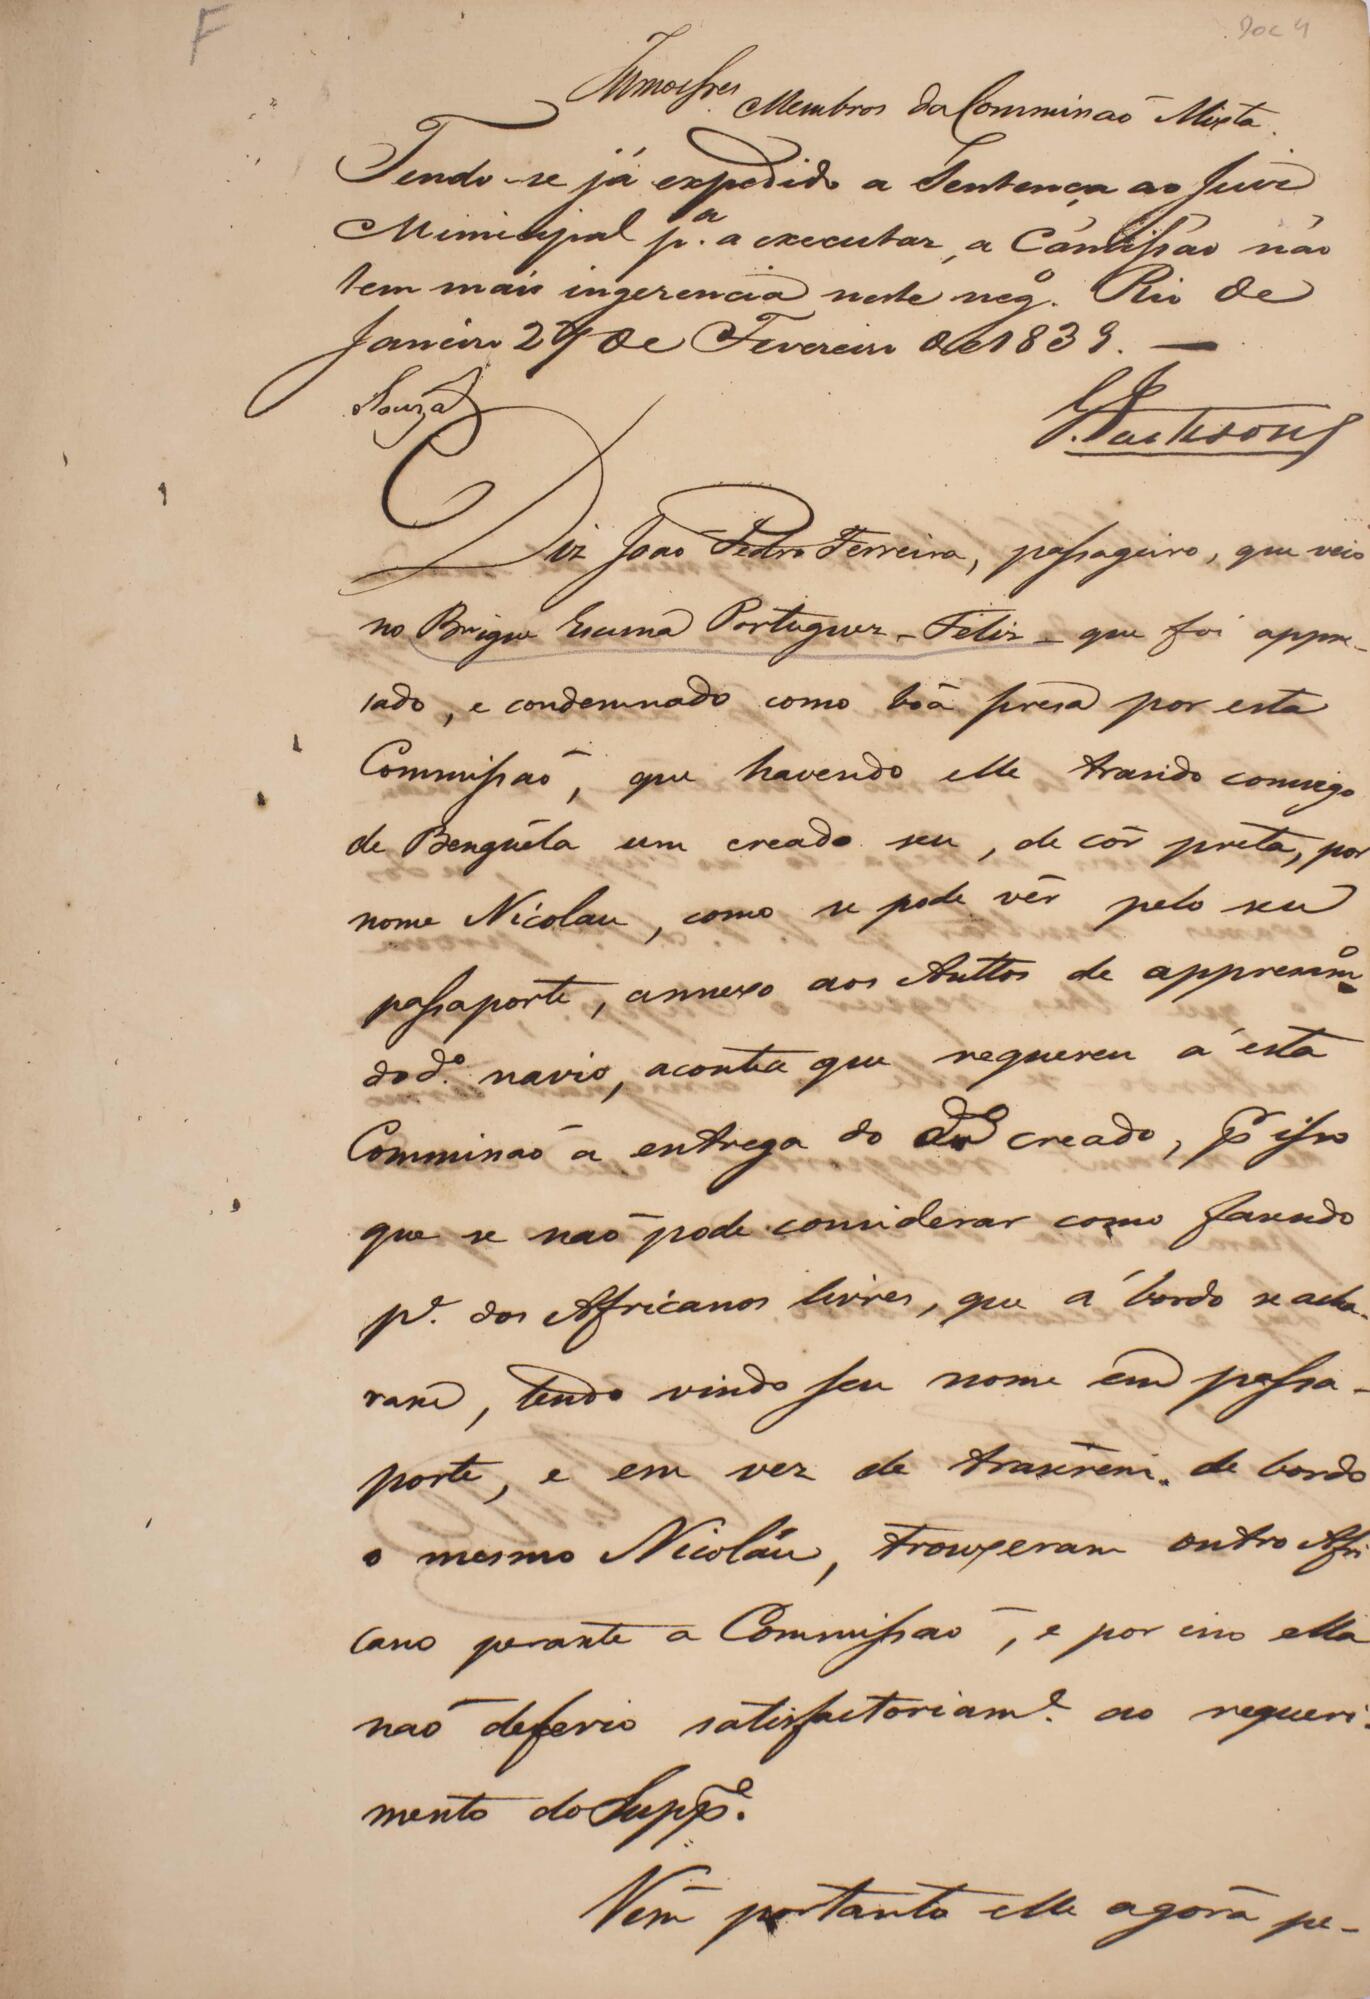 F
Doc 4
Illmos. Snres. Membros da Commissaõ Mixta.
Tendo-se já expedido a Sentença ao Juiz
Municipal pa. a executar, a Cómissão não
tem mais ingerencia neste nego. Rio de
Janeiro 27 de Fevereiro de 1839. —
Souza
G. Jackson
Diz Joaõ Pedro Ferreira, passageiro, que veio
no Brigue Escuna Portuguez - Feliz - que foi appre-
sado, e condemnado como bôa presa por esta
Commissaõ, que havendo elle trasido comsigo
de Benguéla um creado seu, de côr preta, por
nome Nicolau, como se pode vêr pelo seu
passaporte, annexo aos Auttos de appresamo.
do do. navio, acontece que requereu á esta
Commissaõ a entrega do do. creado, pr. isso
que se naõ pode considerar como fasendo
pe. dos Africanos livres, que á bordo se acha-
ram, tendo vindo seu nome em passa-
porte, e em vez de traserem de bordo
o mesmo Nicoláu, trouxeram outro Afri
cano perante a Commissaõ, e por isso ella
naõ deferio satisfactoriame. ao requeri-
mento do Suppe.
Vem portanto elle agora pe-